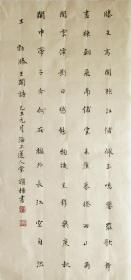 滕王高閣臨江渚佩玉鳴鸞罷歌舞
畫棟朝飛南浦雲朱簾暮捲西山雨
閒雲潭影日悠悠物換星移幾度秋
閣中帝子今何在檻外長江空自流
王勃滕王閣詩 元月海上道人 書